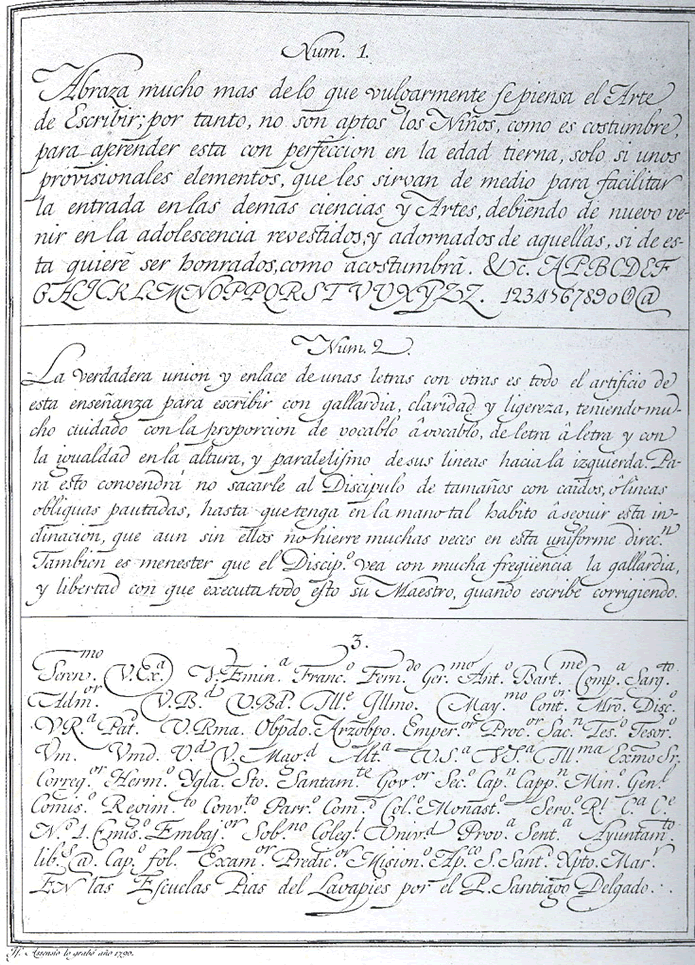 Num. 1.
Abraza mucho mas delo que vulgarmente se piensa el Arte
de Escribir; por tanto, no son aptos los Niños, como es costumbre,
para aprender esta con perfeccion en la edad tierna, solo si unos
provisionales elementos, que les sirvan de medio para facilitar
la entrada en las demas ciencias y Artes, debiendo de nuevo ve-
nir en la adolescencia revestidos, y adornados de aquellas, si de es-
ta quierē ser honrados, como acostumbrā. &c. A P B C D E F
G H I C K L E M N O P P Q R S T V U X Y Z Z. 1234567890 @
Num. 2.
La verdadera union y enlace de unas letras con otras es todo el artificio de
esta enseñanza para escribir con gallardia, claridad y ligereza, teniendo mu-
cho cuidado con la proporcion de vocablo â vocablo, de letra â letra y con
la igualdad en la altura, y paralelismo de sus lineas hacia la izquierda. Pa-
ra esto convendrá no sacarle al Discipulo de tamaños con caidos, ô lineas
obliquas pautadas, hasta que tenga en la mano tal habito â seguir esta in-
clinacion, que aun sin ellos no hierre muchas veces en esta uniforme direc.n
Tambien es menester que el Discip.o vea con mucha freqüencia la gallardia,
y libertad con que executa todo esto su Maestro, quando escribe corrigiendo.
3.
Seren.mo V. Ex.a V. Emin.a Franc.o Fern.do Ger.mo Ant.o Bart.me Comp.a Sarg.to
Adm.or V. B.d V. Bd. Ill.e Illmo. May.mo Cont.or Mro. Disc.o
V. R.a Pat. V. Rma. Obpdo. Arzobpo. Emper.or Proc.or Sac.n Tes.o Tesor.o
Vm. Vmd. V.d V. Mag.d Alt.a V. S.a V. S.a Ill.ma Exmo Sr.
Correg.or Herm.o Ygla. Sto. Santam.te Gov.or Sec.o Cap.n Capp.n Min.o Gen.l
Comis.o Regim.to Conv.to Parr.o Com.d Col.o Monast.o Serv.o R.l C.a C.e
N.o 1. Emis.o Embaj.or Sob.no Coleg.l Univ.d Prov.a Sent.a Ayuntam.to
lib.s @. Cap.o fol. Exam.or Predic.or Mision.o Ap.co S. Sant.o Xpto. Mar.
EN las Escuelas Pias del Lavapies por el P. Santiago Delgado.
Asensio lo grabó año 1790.